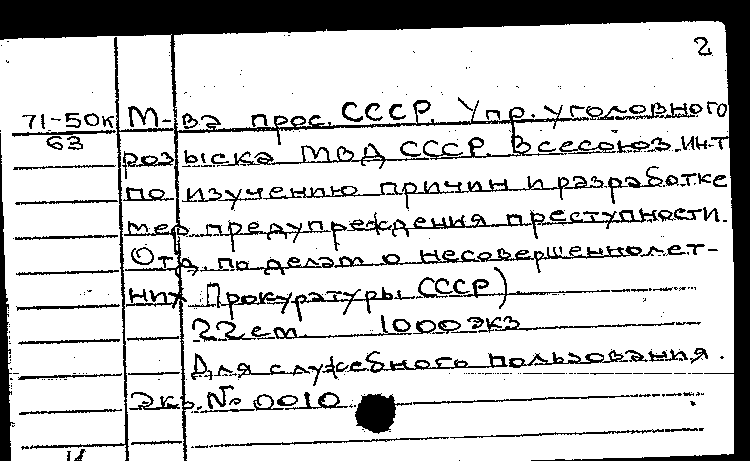 2
71-50к М-ва прос. СССР. Упр. уголовного
63 розыска МВД СССР. Всесоюз. ин-т
по изучению причин и разработке
мер предупреждения преступности.
Отд. по делам о несовершеннолет-
них Прокуратуры СССР).
22 см 1000 экз
Для служебного пользования.
Экз. № 0010